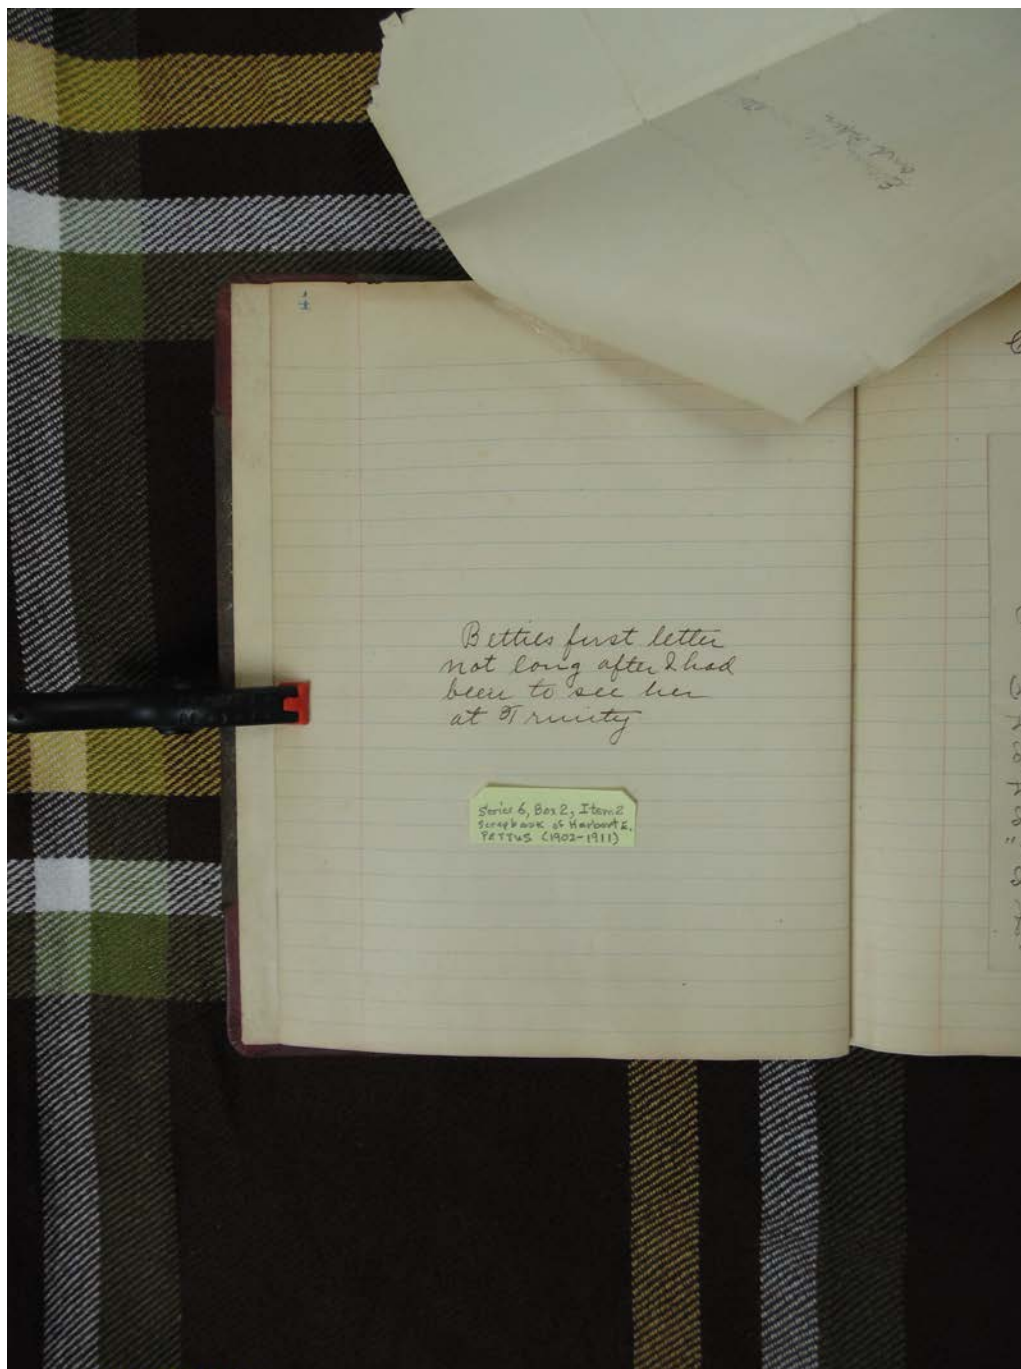 4
Betties first letter
not long after I had
been to see her
at Trinity
Series 6, Box 2, Item 2
Scrapbook of Harbert E.
PETTUS (1902-1911)
and